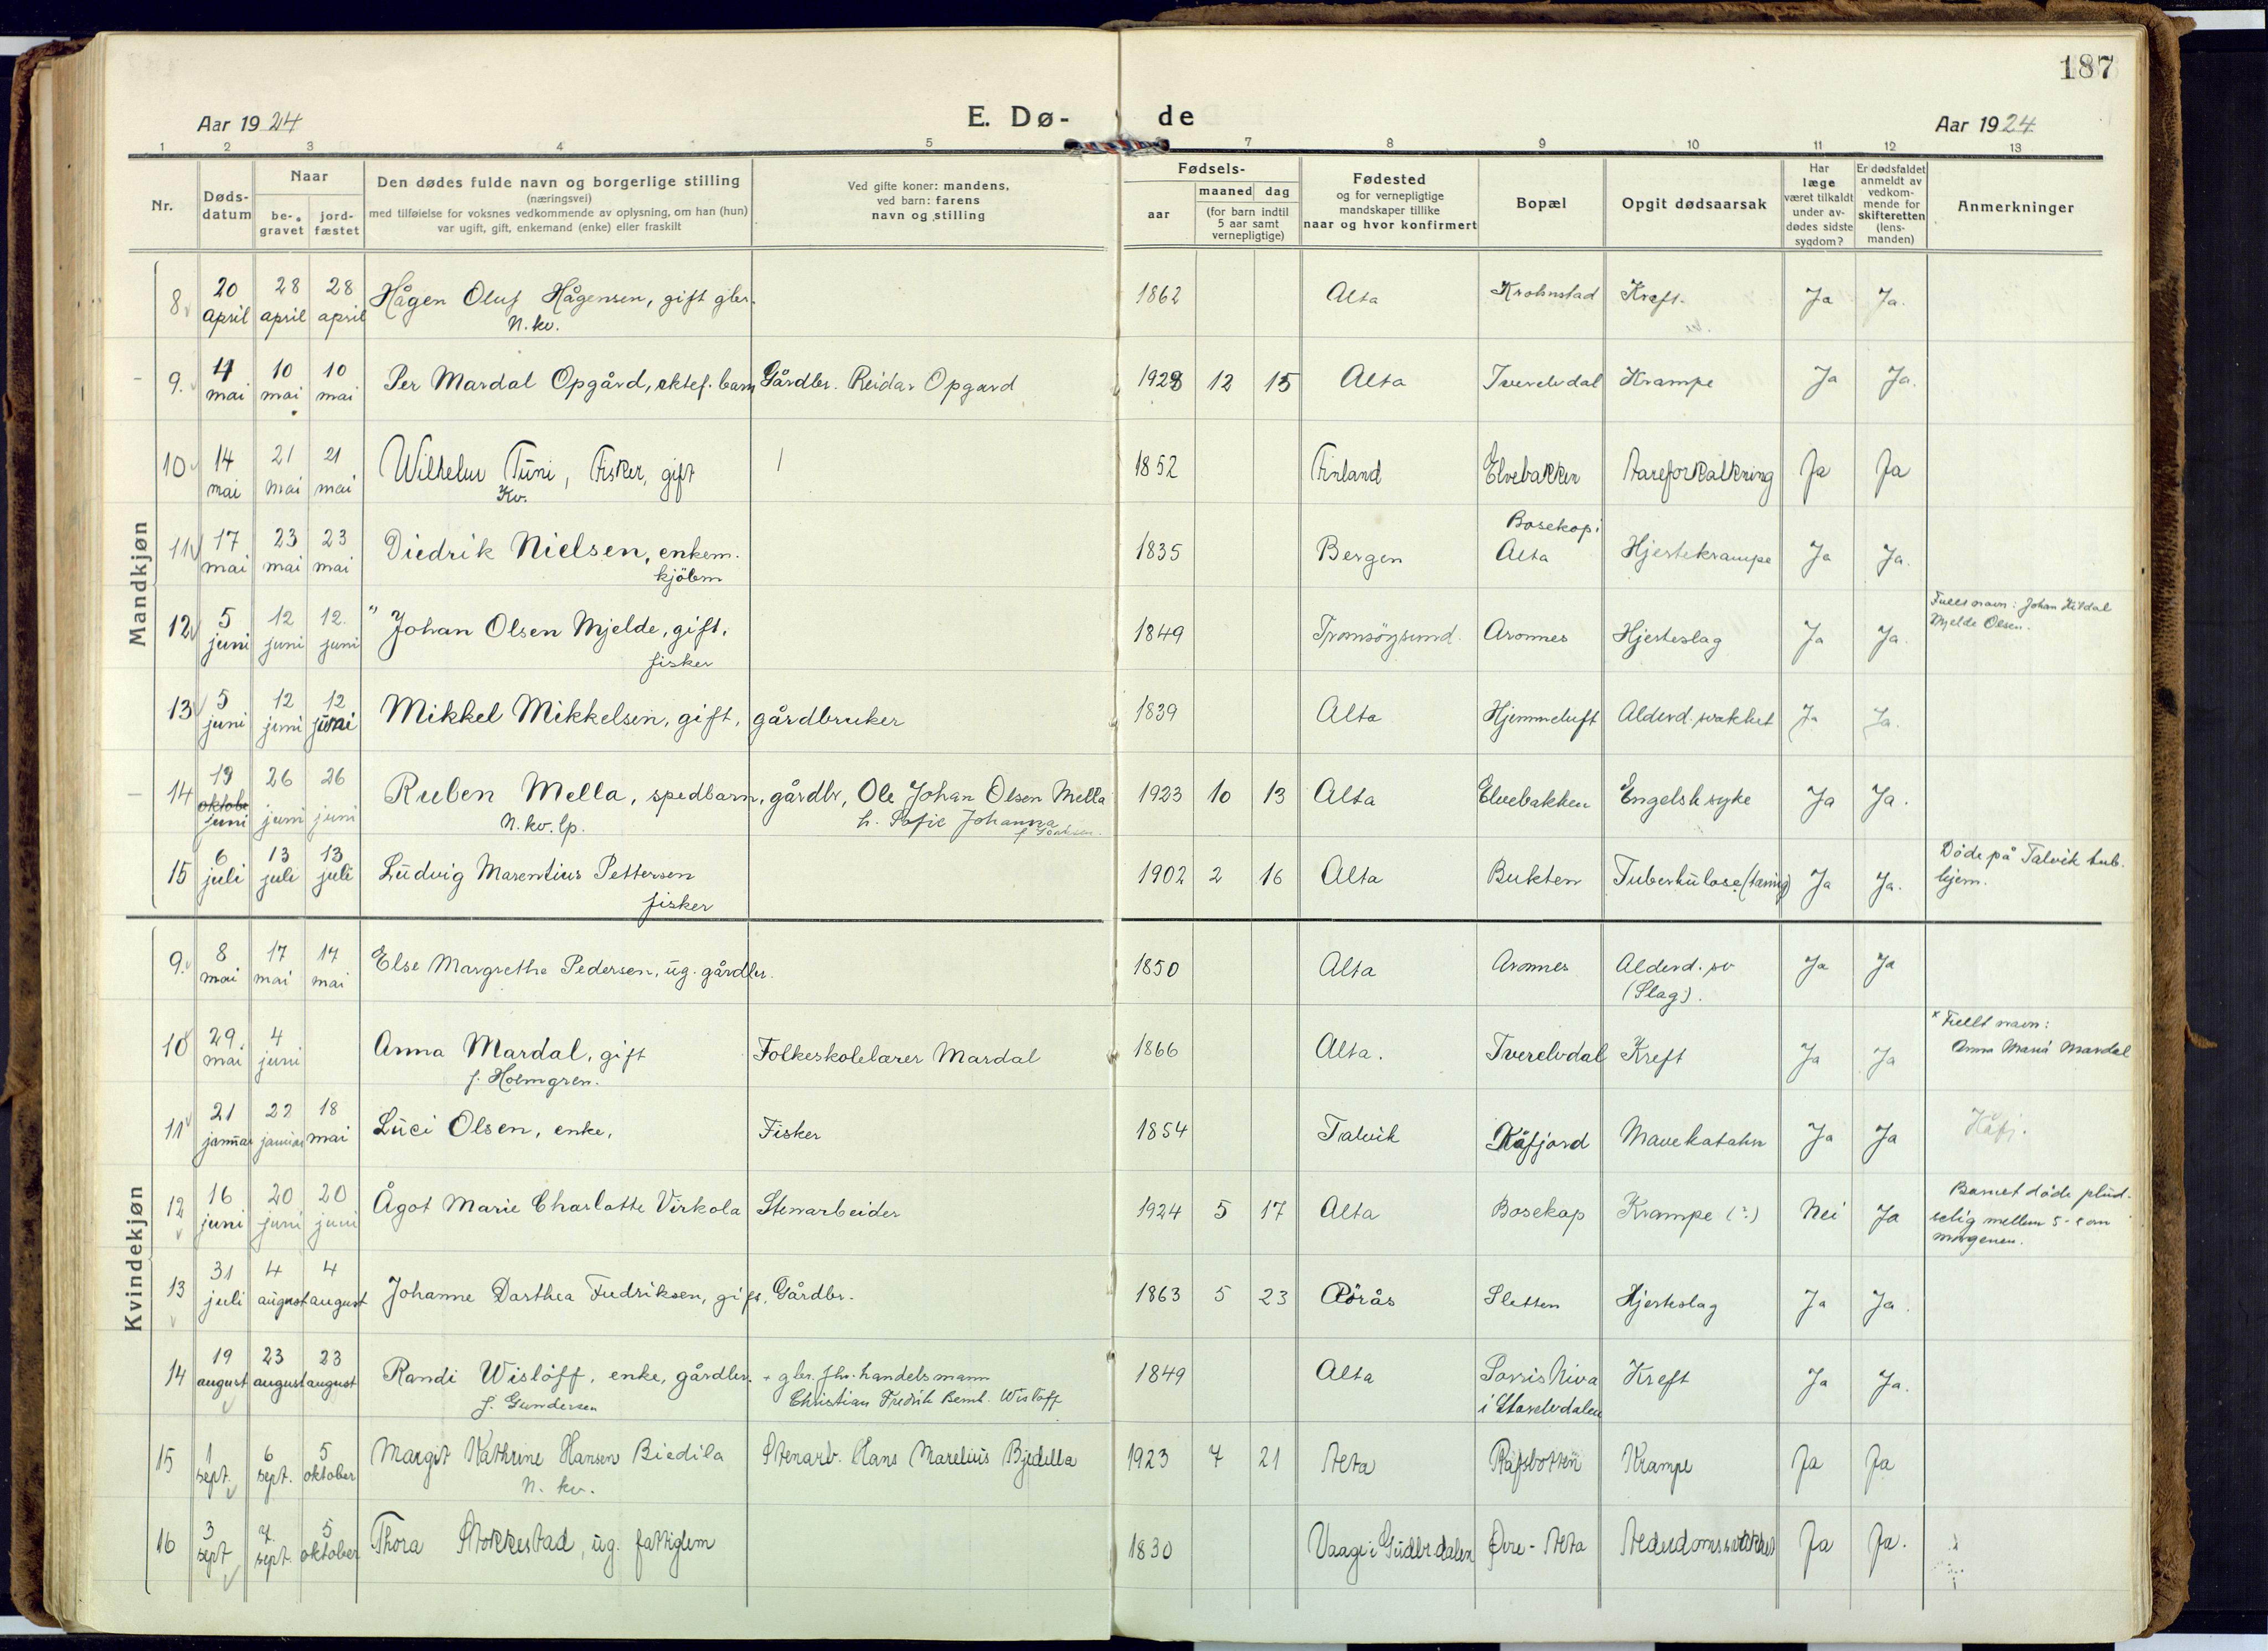 187
Aar 1924 E. Dø- de Aar 1924
1 2 3 4 5 7 8 9 10 11 12 13
Nr.
Døds-
datum
Naar
be-
gravet
jord-
fæstet
Den dødes fulde navn og borgerlige stilling
(næringsvei)
med tilføielse for voksnes vedkommende av oplysning, om han (hun)
var ugift, gift, enkemand (enke) eller fraskilt
Ved gifte koner: mandens,
ved barn: farens
navn og stilling
Fødsels-
aar
maaned dag
(for barn indtil
5 aar samt
vernepligtige)
Fødested
og for vernepligtige
mandskaper tillike
naar og hvor konfirmert
Bopæl
Opgit dødsaarsak
Har
læge
været tilkaldt
under av-
dødes sidste
sygdom?
Er dødsfaldet
anmeldt av
vedkom-
mende for
skifteretten
(lens-
manden)
Anmerkninger
Mandkjøn
8 20 28 28 Hågen Oluf Hågensen, gift gbr. 1862 Alta Krohnstad Kreft. Ja Ja.
april april april N. kv.
9. 4 10 10 Per Mardal Opgård, ektef. barn Gårdbr. Reidar Opgard 1923 12 15 Alta Tverelvdal Krampe Ja Ja.
mai mai mai
10 14 21 21 Wilhelm Tuni, Fisker, gift 1852 Finland Elvebakken Aareforkalkning Ja Ja
mai mai mai Kv.
Bosekop i
11 17 23 23 Diedrik Nielsen, enkem. 1835 Bergen Alta Hjertekrampe Ja Ja.
mai mai mai kjöbm
12 5 12 12. " Johan Olsen Mjelde, gift, 1849 Tromsöysund. Aronnes Hjerteslag Ja Ja. Fullt navn: Johan Kildal
juni juni juni fisker Mjelde Olsen.
13 5 12 12 Mikkel Mikkelsen, gift, gårdbruker 1839 Alta Hjemmeluft Alderd. svakhet Ja Ja.
juni juni juni
14 19 26 26 Ruben Mella, spedbarn, gårdbr, Ole Johan Olsen Mella 1923 10 13 Alta Elvebakken Engelsk syke Ja Ja.
oktobe
juni juni juni N. kv. lp. h. Sofie Johanna
15 6 13 13 Ludvig Marentius Pettersen 1902 2 16 Alta Bukten Tuberkulose (tæring) Ja Ja. Döde på Talvik tub.
juli juli juli fisker hjem.
Kvindekjøn
9. 8 17 17 Else Margrethe Pedersen, ug. gårdbr. 1850 Alta Aronnes Alderd. sv Ja Ja
mai mai mai (Slag).
10 29 4 Anna Mardal, gift Folkeskolelærer Mardal 1866 Alta. Tverelvdal Kreft Ja Ja * Fullt navn:
mai juni f. Holmgren. Anna Maria Mardal
11 21 22 18 Luci Olsen, enke, Fisker 1854 Talvik Kåfjord Mavekatahr Ja Ja Kåfj.
januar januar mai
12 16 20 20 Ågot Marie Charlotte Virkola Stenarbeider 1924 5 17 Alta Bosekop Krampe (?) Nei Ja Barnet döde plud-
juni juni juni selig mellem 5-6 om
morgenen.
13 31 4 4 Johanne Darthea Fredriksen, gift, Gårdbr. 1863 5 23 Rörås Sletten Hjerteslag Ja Ja.
juli august august
14 19 23 23 Randi Wislöff, enke, gårdbr. + gbr. fhv. handelsmann 1849 Alta Sorrisniva Kreft Ja Ja.
august august august f. Gundersen Christian Fredrik Bernt. Wislöff i Storelvdalen
15 1 6 5 Margit Kathrine Hansen Biedila Stenarb. Hans Marelius Bjedilla 1923 7 21 Alta Rafsbotten Krampe Ja Ja
sept. sept. oktober N. kv.
16 3 7. 5 Thora Stokkestad, ug. fattiglem 1830 Vaage i Gudbrdalen Øvre-Alta Alderdomssvakhet Ja Ja.
sept sept. oktober